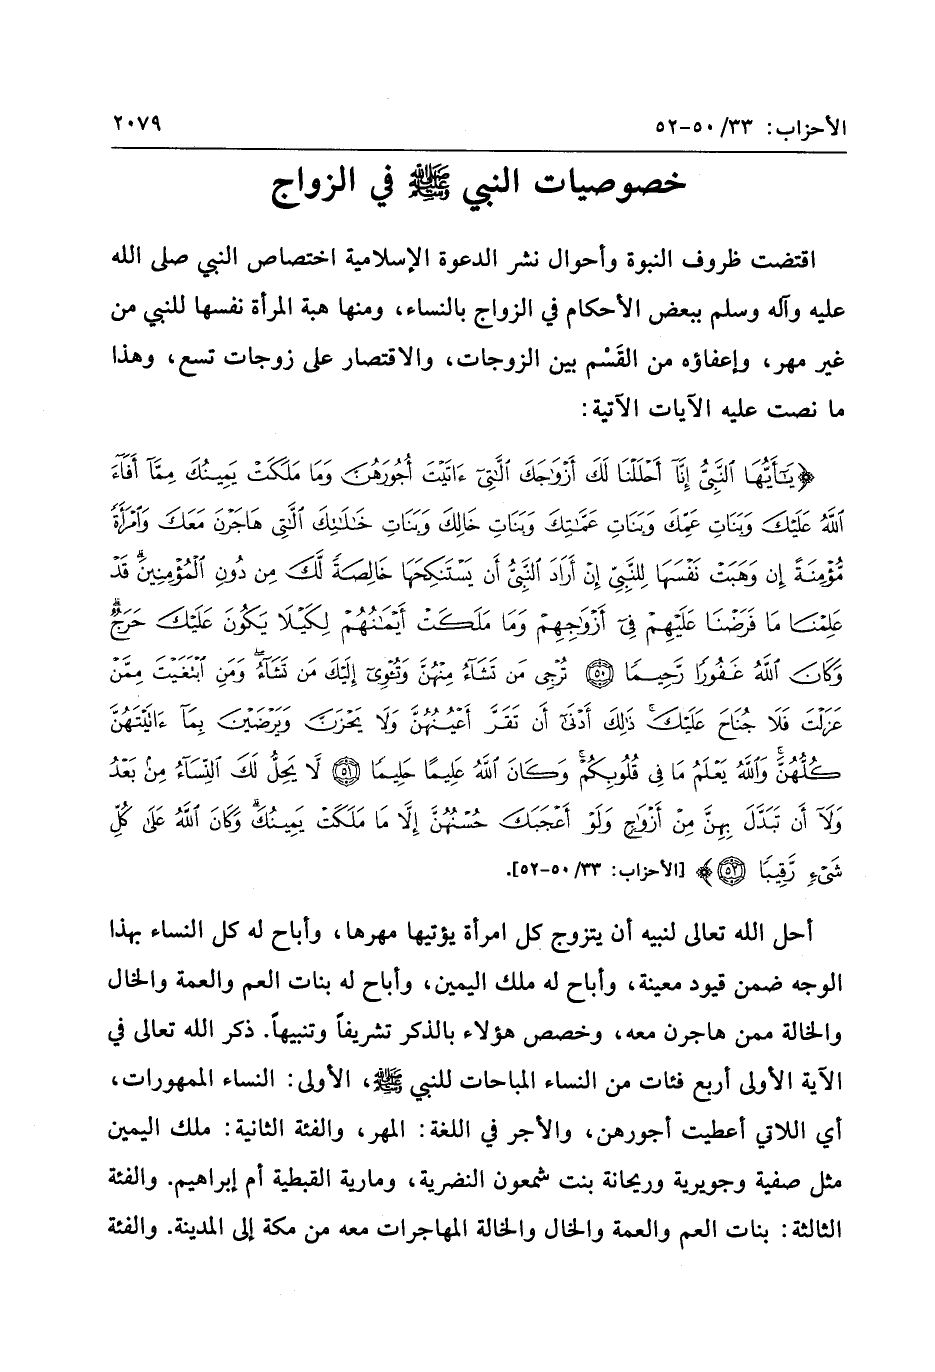 الأحزاب: ٣٣/ ٥٠-٥٢
٢٠٧٩
خصوصيات النبي ﷺ في الزواج
اقتضت ظروف النبوة وأحوال نشر الدعوة الإسلامية اختصاص النبي صلى الله
عليه وآله وسلم ببعض الأحكام في الزواج بالنساء، ومنها هبة المرأة نفسها للنبي من
غير مهر، وإعفاؤه من القَسْم بين الزوجات، والاقتصار على زوجات تسع، وهذا
ما نصت عليه الآيات الآتية:
﴿يَٰٓأَيُّهَا ٱلنَّبِىُّ إِنَّآ أَحْلَلْنَا لَكَ أَزْوَٰجَكَ ٱلَّٰتِىٓ ءَاتَيْتَ أُجُورَهُنَّ وَمَا مَلَكَتْ يَمِينُكَ مِمَّآ أَفَآءَ
ٱللَّهُ عَلَيْكَ وَبَنَاتِ عَمِّكَ وَبَنَاتِ عَمَّٰتِكَ وَبَنَاتِ خَالِكَ وَبَنَاتِ خَٰلَٰتِكَ ٱلَّٰتِى هَاجَرْنَ مَعَكَ وَٱمْرَأَةً
مُّؤْمِنَةً إِن وَهَبَتْ نَفْسَهَا لِلنَّبِىِّ إِنْ أَرَادَ ٱلنَّبِىُّ أَن يَسْتَنكِحَهَا خَالِصَةً لَّكَ مِن دُونِ ٱلْمُؤْمِنِينَۗ قَدْ
عَلِمْنَا مَا فَرَضْنَا عَلَيْهِمْ فِىٓ أَزْوَٰجِهِمْ وَمَا مَلَكَتْ أَيْمَٰنُهُمْ لِكَيْلَا يَكُونَ عَلَيْكَ حَرَجٌۗ
وَكَانَ ٱللَّهُ غَفُورًا رَّحِيمًا ۝٥٠ تُرْجِى مَن تَشَآءُ مِنْهُنَّ وَتُـْٔوِىٓ إِلَيْكَ مَن تَشَآءُۖ وَمَنِ ٱبْتَغَيْتَ مِمَّنْ
عَزَلْتَ فَلَا جُنَاحَ عَلَيْكَۚ ذَٰلِكَ أَدْنَىٰٓ أَن تَقَرَّ أَعْيُنُهُنَّ وَلَا يَحْزَنَّ وَيَرْضَيْنَ بِمَآ ءَاتَيْتَهُنَّ
كُلُّهُنَّۚ وَٱللَّهُ يَعْلَمُ مَا فِى قُلُوبِكُمْۚ وَكَانَ ٱللَّهُ عَلِيمًا حَلِيمًا ۝٥١ لَّا يَحِلُّ لَكَ ٱلنِّسَآءُ مِنۢ بَعْدُ
وَلَآ أَن تَبَدَّلَ بِهِنَّ مِنْ أَزْوَٰجٍ وَلَوْ أَعْجَبَكَ حُسْنُهُنَّ إِلَّا مَا مَلَكَتْ يَمِينُكَۗ وَكَانَ ٱللَّهُ عَلَىٰ كُلِّ
شَىْءٍ رَّقِيبًا ۝٥٢﴾ [الأحزاب: ٣٣/ ٥٠-٥٢].
أحل الله تعالى لنبيه أن يتزوج كل امرأة يؤتيها مهرها، وأباح له كل النساء بهذا
الوجه ضمن قيود معينة، وأباح له ملك اليمين، وأباح له بنات العم والعمة والخال
والخالة ممن هاجرن معه، وخصص هؤلاء بالذكر تشريفاً وتنبيهاً. ذكر الله تعالى في
الآية الأولى أربع فئات من النساء المباحات للنبي ﷺ، الأولى: النساء الممهورات،
أي اللاتي أعطيت أجورهن، والأجر في اللغة: المهر، والفئة الثانية: ملك اليمين
مثل صفية وجويرية وريحانة بنت شمعون النضرية، ومارية القبطية أم إبراهيم. والفئة
الثالثة: بنات العم والعمة والخال والخالة المهاجرات معه من مكة إلى المدينة. والفئة